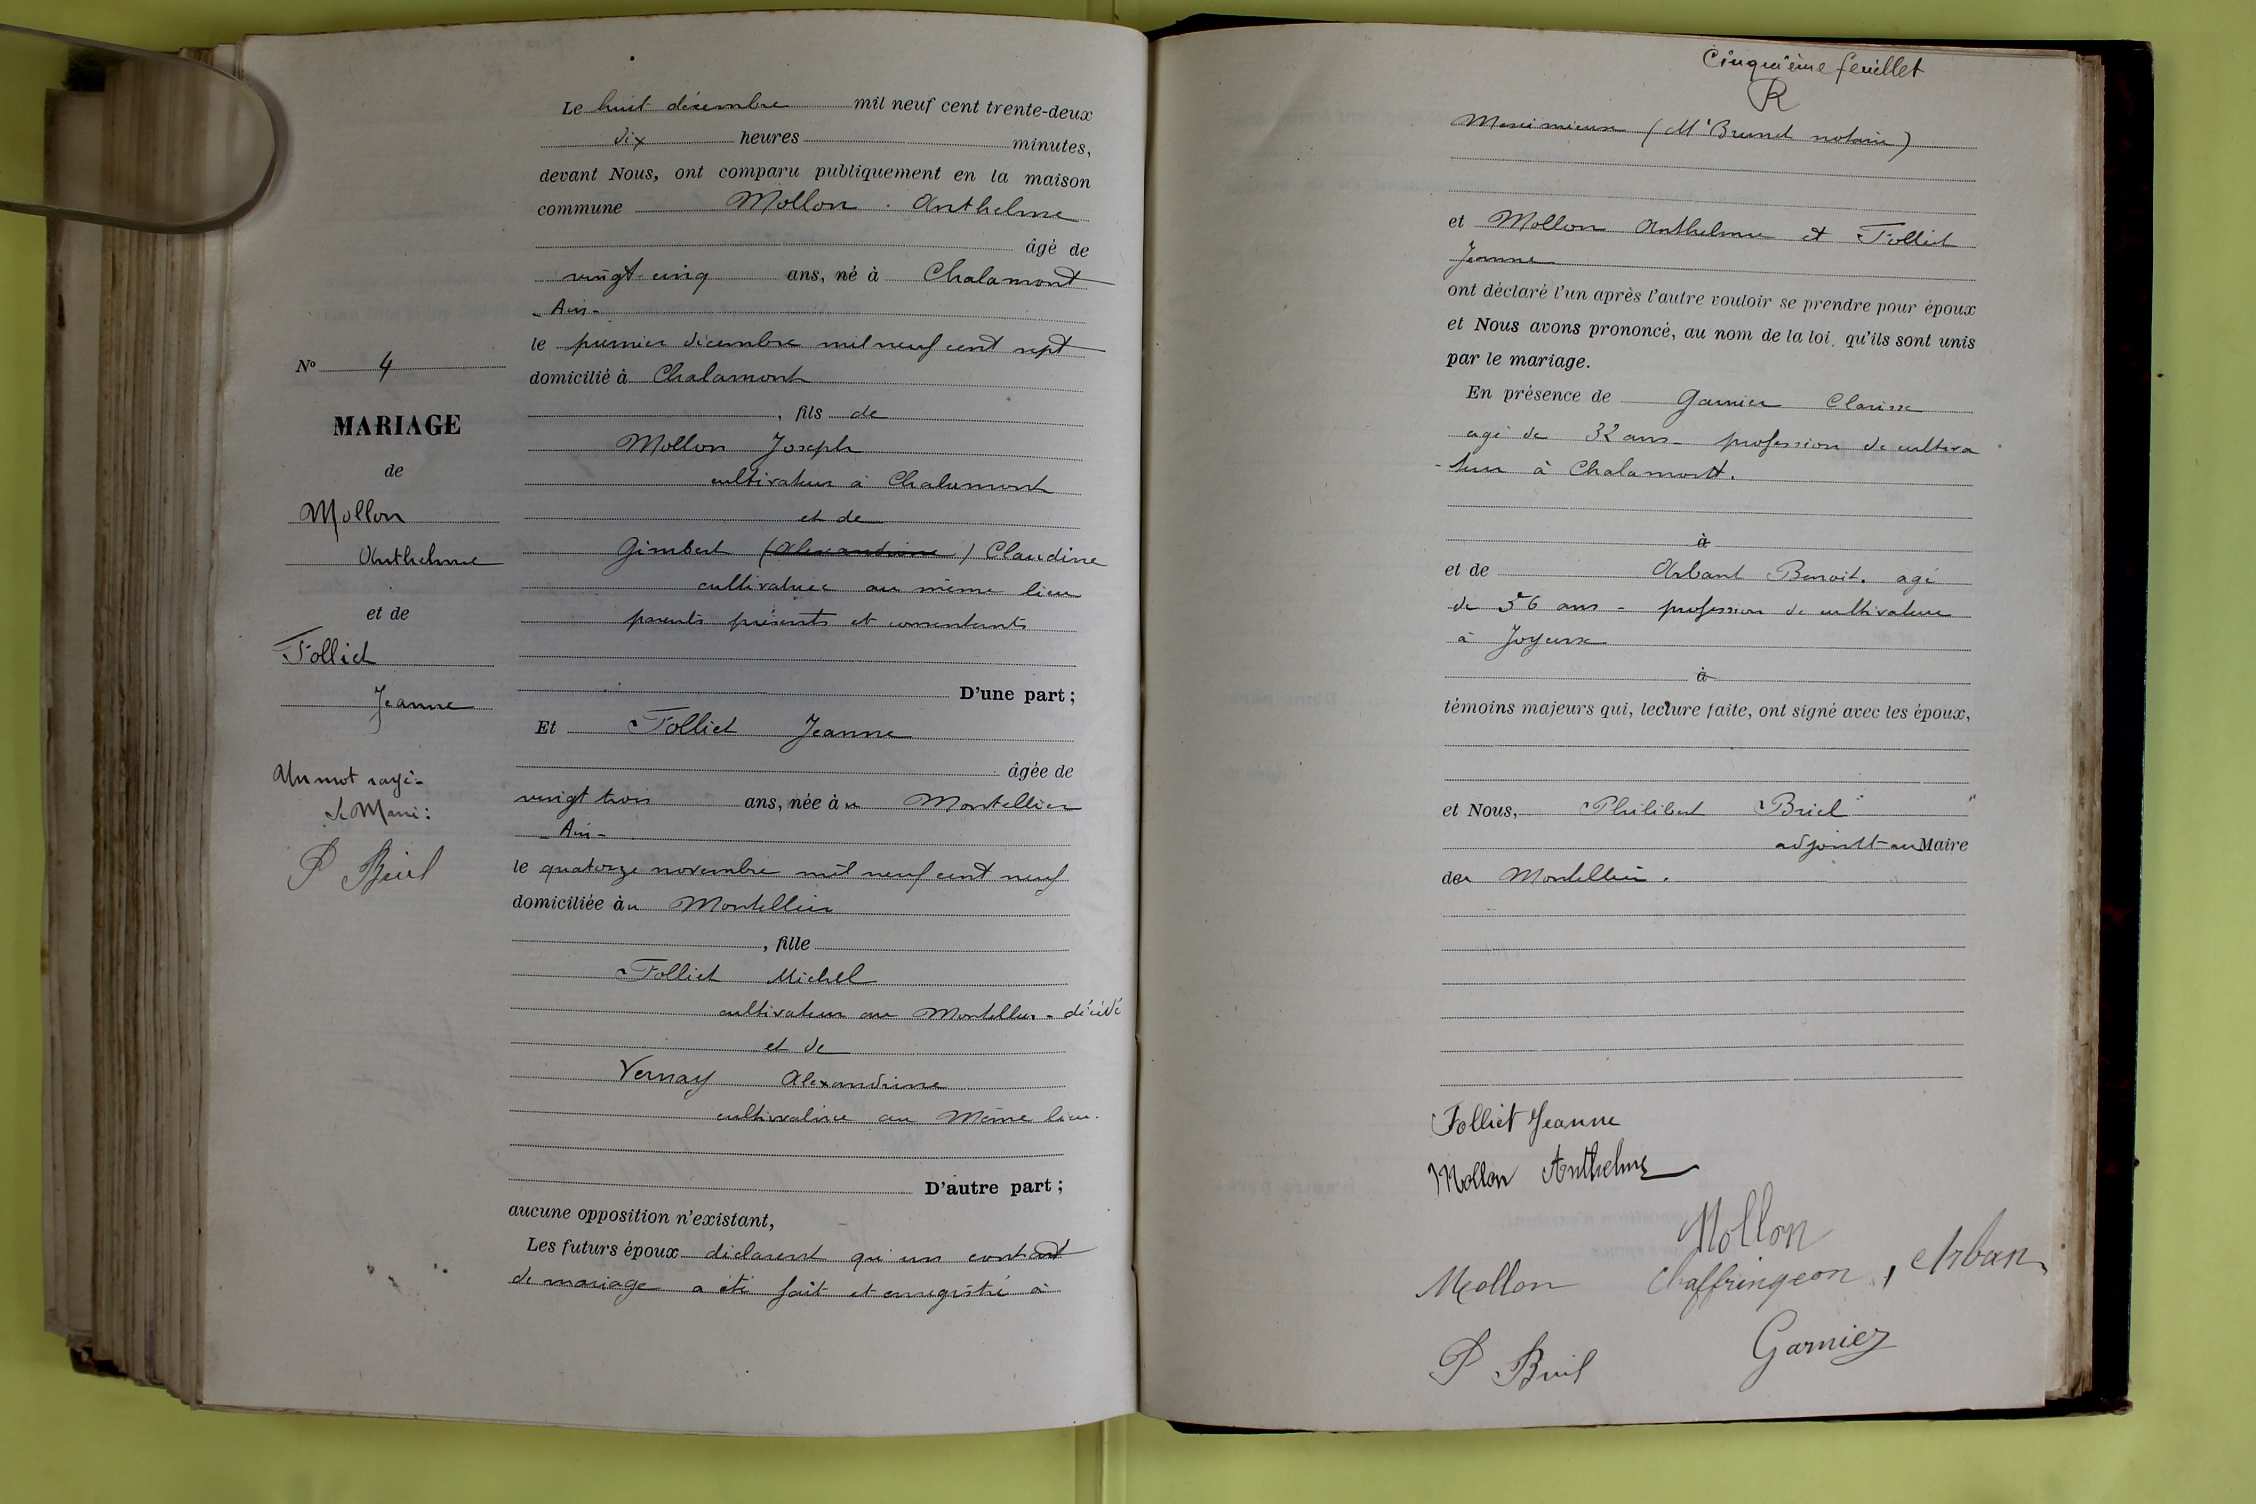 N° 4
MARIAGE
de
Mollon
Anthelme
et de
Folliet
Jeanne
Un mot rayé -
Le Maire :
P Briel
Le huit décembre mil neuf cent trente-deux
dix heures minutes,
devant Nous, ont comparu publiquement en la maison
commune Mollon Anthelme
âgé de
vingt-cinq ans, né à Chalamont
- Ain -
le premier décembre mil neuf cent sept
domicilié à Chalamont
, fils de
Mollon Joseph
cultivateur à Chalamont
et de
Gimbert (Alexandrine) Claudine
cultivatrice au même lieu
parents présents et consentants
D'une part ;
Et Folliet Jeanne
âgée de
vingt trois ans, née àu Montellier
- Ain -
le quatorze novembre mil neuf cent neuf
domiciliée àu Montellier
, fille
Folliet Michel
cultivateur au Montellier - décédé
et de
Vernay Alexandrine
cultivatrice au même lieu.
D'autre part ;
aucune opposition n'existant,
Les futurs époux déclarent qu'un contrat
de mariage a été fait et enregistré à
Cinquième feuillet
R
Meximieux (Me Brunet notaire)
et Mollon Anthelme et Folliet
Jeanne
ont déclaré l'un après l'autre vouloir se prendre pour époux
et Nous avons prononcé, au nom de la loi, qu'ils sont unis
par le mariage.
En présence de Garnier Clarisse
agé de 32 ans - profession de cultiva
-teur à Chalamont.
à
et de Arbant Benoit. agé
de 56 ans - profession de cultivateur
à Joyeux
à
témoins majeurs qui, lecture faite, ont signé avec les époux,
et Nous, Philibert Briel
adjoint au Maire
de Montellier.
Folliet Jeanne
Mollon Anthelme
Mollon
Mollon Chaffringeon, Arban
P Briel Garnier